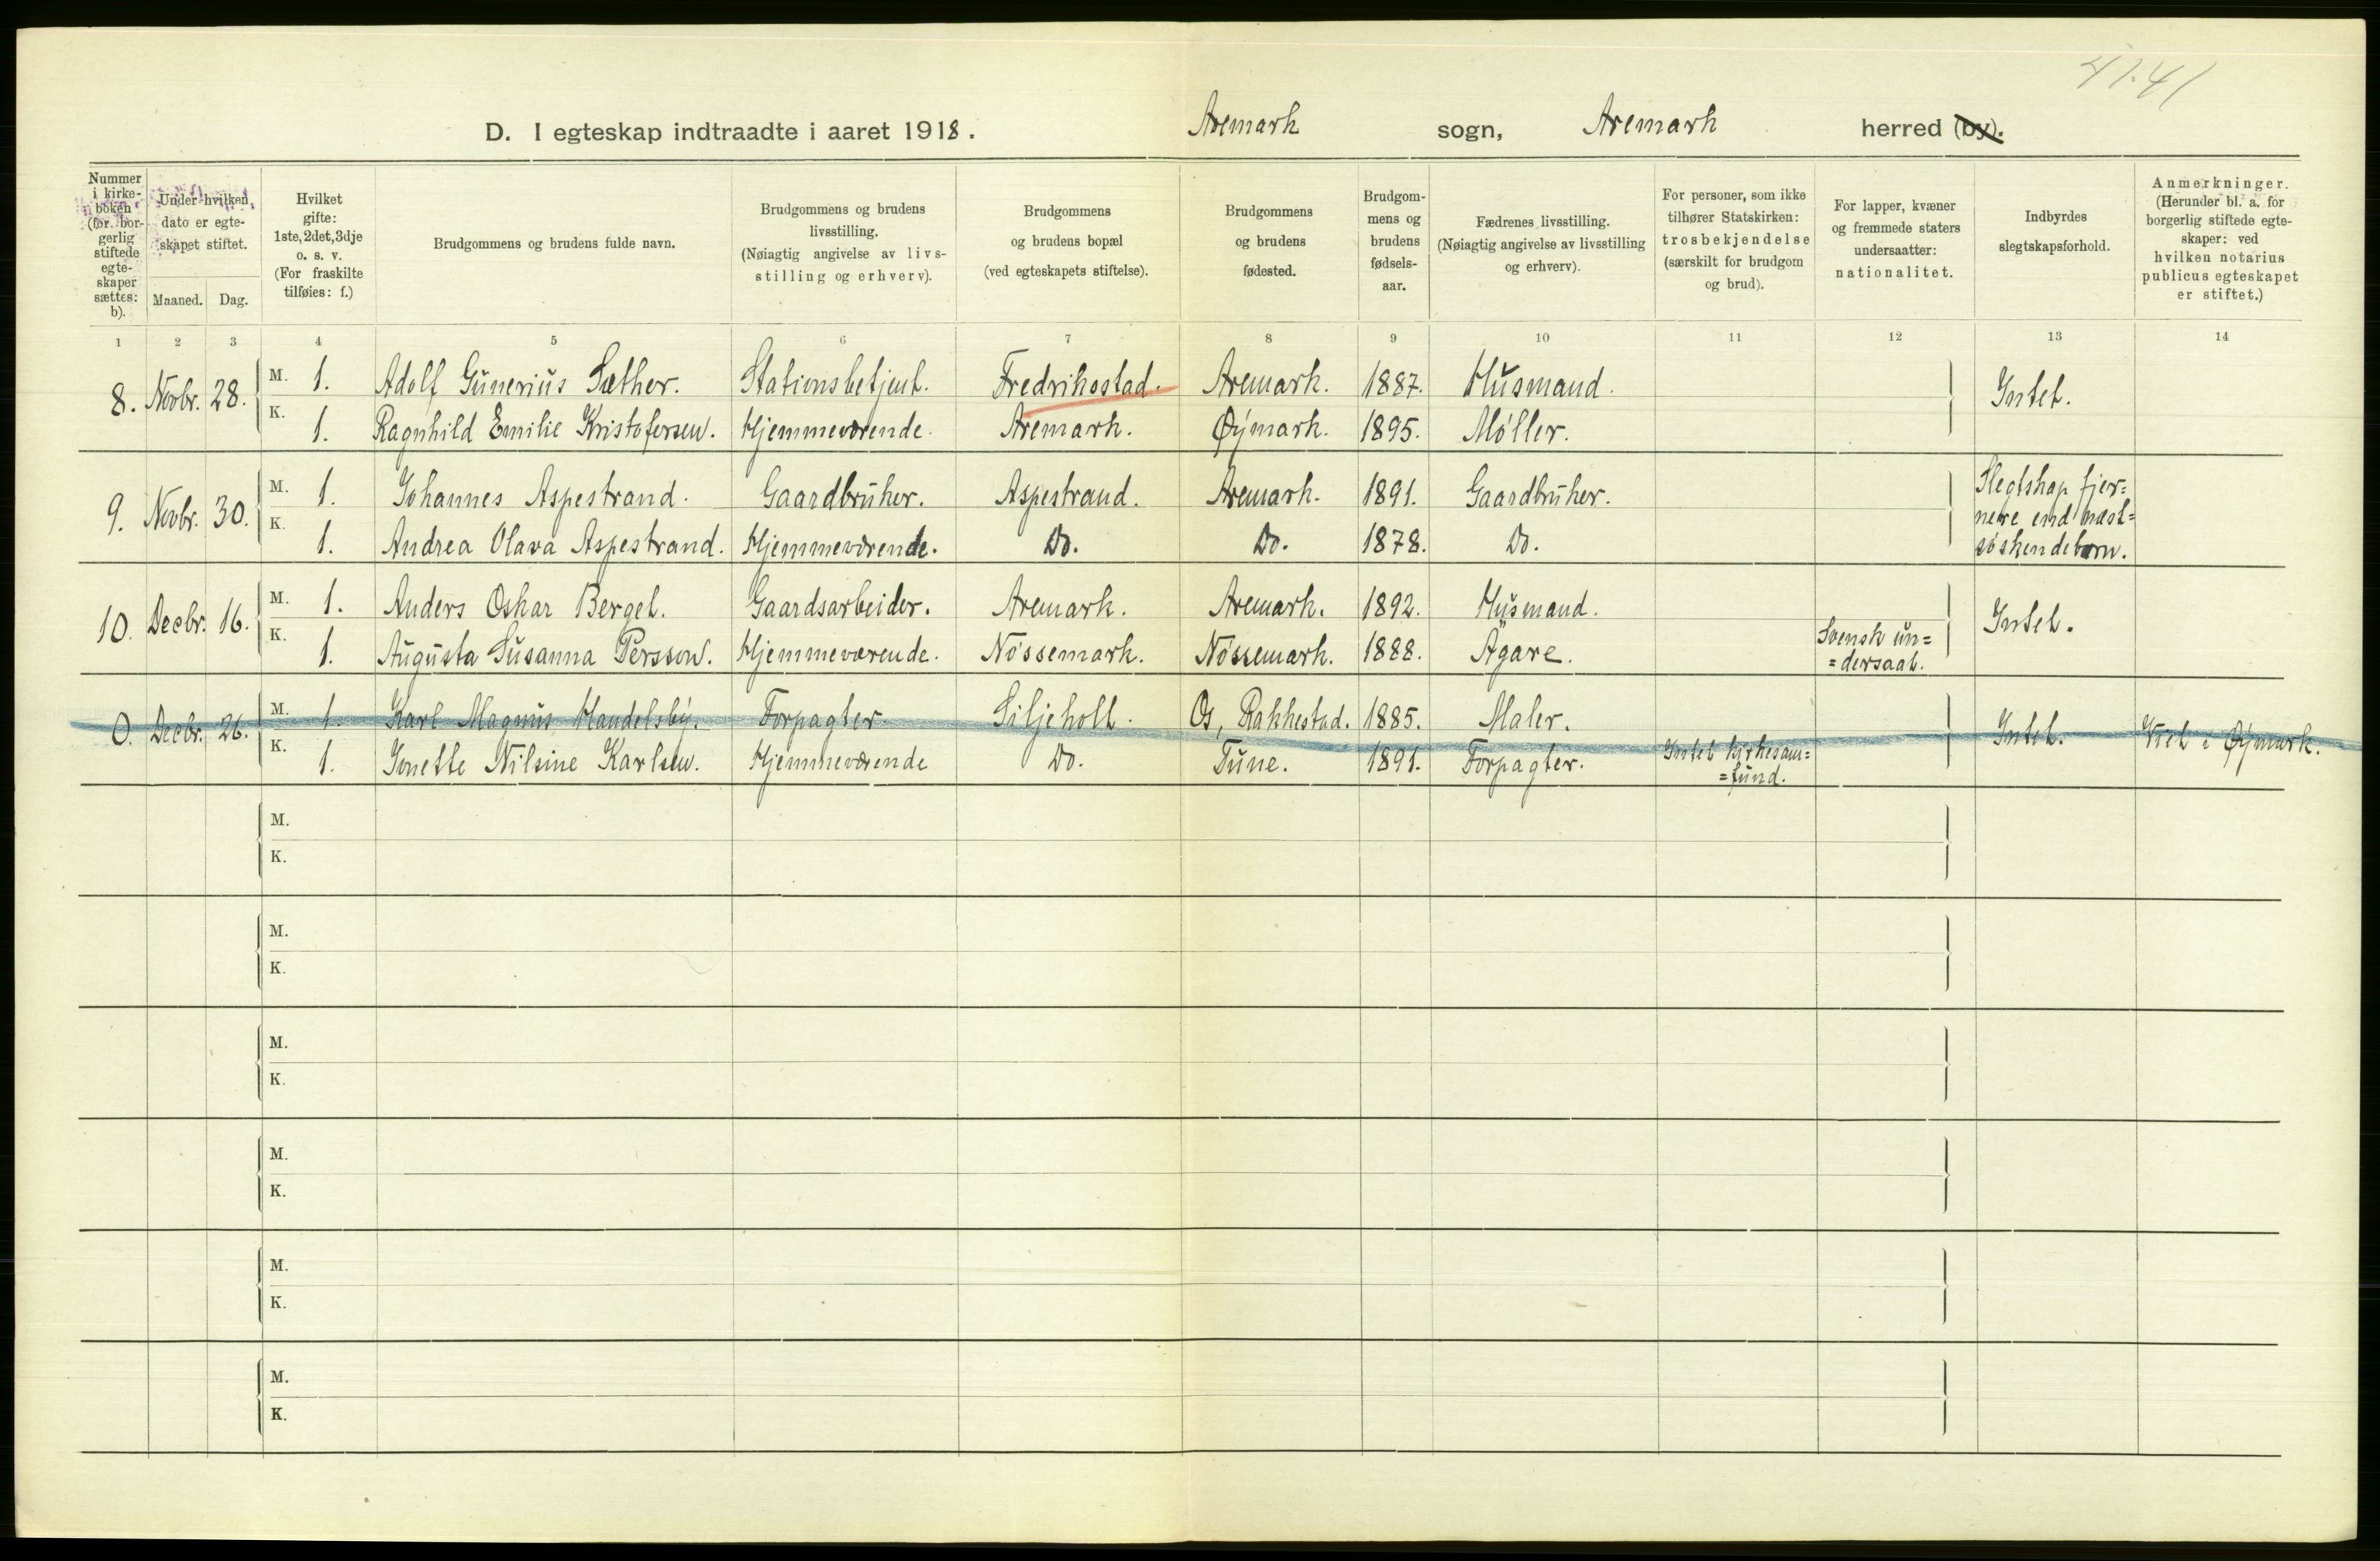 41.41
D. I egteskap indtraadte i aaret 1918. Aremark sogn, Aremark herred (by).
Nummer i kirkeboken (for borgerlig stiftede egteskaper sættes: b).
Under hvilken dato er egteskapet stiftet.
Maaned. Dag.
Hvilket gifte: 1ste, 2det, 3dje o. s. v. (For fraskilte tilføies: f.)
Brudgommens og brudens fulde navn.
Brudgommens og brudens livsstilling. (Nøiagtig angivelse av livsstilling og erhverv).
Brudgommens og brudens bopæl (ved egteskapets stiftelse).
Brudgommens og brudens fødested.
Brudgommens og brudens fødselsaar.
Fædrenes livsstilling. (Nøiagtig angivelse av livsstilling og erhverv).
For personer, som ikke tilhører Statskirken: trosbekjendelse (særskilt for brudgom og brud).
For lapper, kvæner og fremmede staters undersaatter: nationalitet.
Indbyrdes slegtskapsforhold.
Anmerkninger. (Herunder bl. a. for borgerlig stiftede egteskaper: ved hvilken notarius publicus egteskapet er stiftet.)
1 2 3 4 5 6 7 8 9 10 11 12 13 14
8. Novbr. 28. M. 1. Adolf Gunerius Sæther. Stationsbetjent. Fredrikstad. Aremark. 1887. Husmand. Intet.
K. 1. Ragnhild Emilie Kristofersen. Hjemmeværende. Aremark. Øymark. 1895. Møller.
9. Novbr. 30. M. 1. Johannes Aspestrand. Gaardbruker. Aspestrand. Aremark. 1891. Gaardbruker. Slegtskap fjer=
nere end næst=
K. 1. Andrea Olava Aspestrand. Hjemmeværende. Do. Do. 1878. Do. søskendebørn.
10. Decbr. 16. M. 1. Anders Oskar Berget. Gaardsarbeider. Aremark. Aremark. 1892. Husmand. Intet.
K. 1. Augusta Susanna Persson. Hjemmeværende. Nössemark. Nössemark. 1888. Ägare. Svensk un=
=dersaat.
0. Decbr. 26. M. 1. Karl Magnus Handelsby. Forpagter. Siljeholt. Os, Rakkestad. 1885. Maler. Intet. Viet i Øymark.
K. 1. Jonette Nilsine Karlsen. Hjemmeværende Do. Tune. 1891. Forpagter. Intet kirkesam=
=fund.
M.
K.
M.
K.
M.
K.
M.
K.
M.
K.
M.
K.